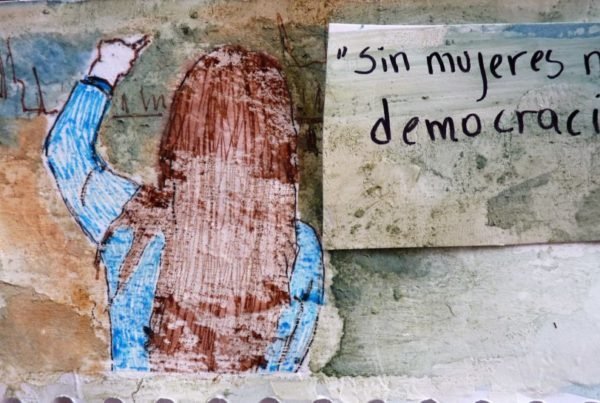 "Sin mujeres n
democraci